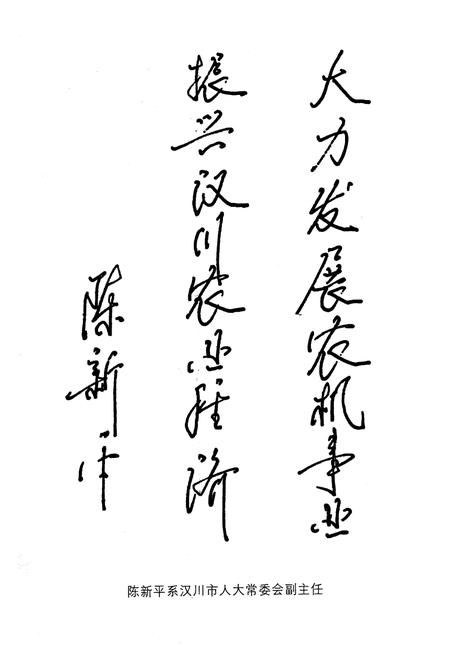 大力发展农机事业
振兴汉川农业经济
陈新平
陈新平系汉川市人大常委会副主任